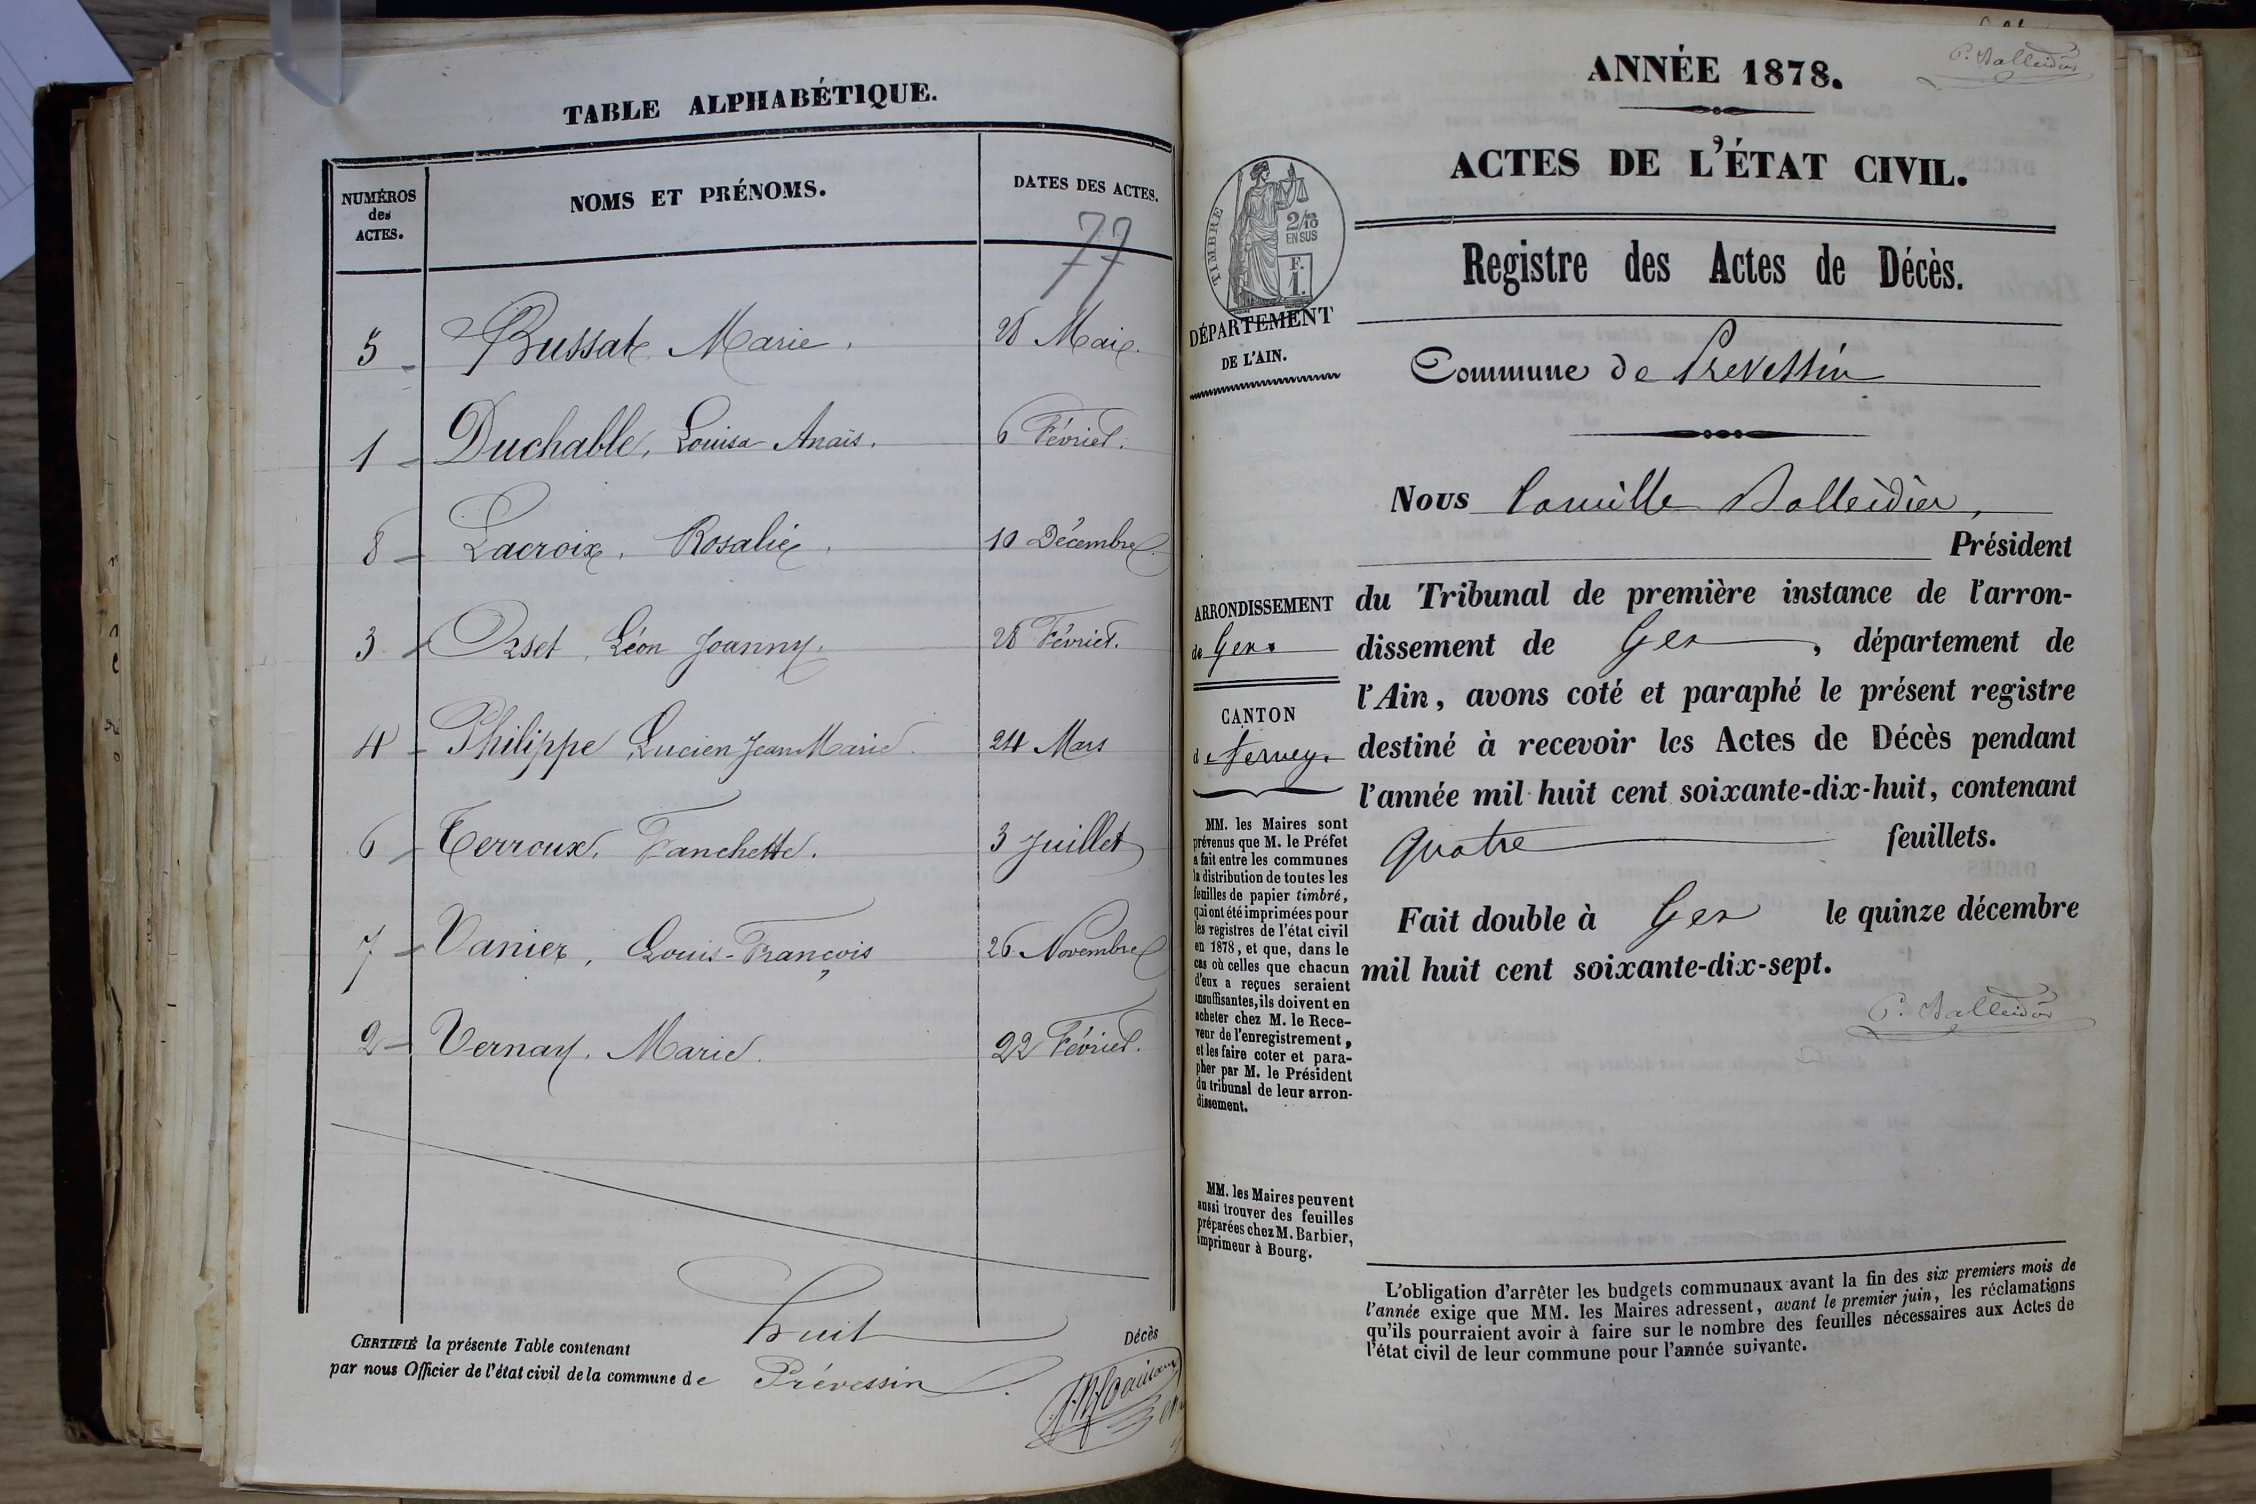 TABLE ALPHABÉTIQUE.
NUMÉROS des ACTES.
NOMS ET PRÉNOMS.
DATES DES ACTES.
77
5 Bussat Marie. 28 Mai.
1 Duchable, Louisa Anaïs. 6 Février.
8 Lacroix, Rosalie. 10 Décembre.
3 Orset, Léon Joanny. 28 Février.
4 Philippe Lucien Jean Marie. 24 Mars
6 Terroux, Fanchette. 3 Juillet
7 Vanier, Louis-François 26 Novembre
2 Vernay, Marie. 22 Février.
CERTIFIÉ la présente Table contenant huit Décès
par nous Officier de l'état civil de la commune de Prévessin
C. Balleidier
ANNÉE 1878.
ACTES DE L'ÉTAT CIVIL.
TIMBRE
2/10
EN SUS
F.
1.
DÉPARTEMENT
DE L'AIN.
Registre des Actes de Décès.
Commune de Prevessin
Nous Camille Balleidier,
Président
ARRONDISSEMENT
de Gex.
CANTON
d Ferney.
du Tribunal de première instance de l'arron-
dissement de Gex, département de
l'Ain, avons coté et paraphé le présent registre
destiné à recevoir les Actes de Décès pendant
l'année mil huit cent soixante-dix-huit, contenant
quatre feuillets.
Fait double à Gex le quinze décembre
mil huit cent soixante-dix-sept.
C. Balleidier
MM. les Maires sont
prévenus que M. le Préfet
a fait entre les communes
la distribution de toutes les
feuilles de papier timbré,
qui ont été imprimées pour
les registres de l'état civil
en 1878, et que, dans le
cas où celles que chacun
d'eux a reçues seraient
insuffisantes, ils doivent en
acheter chez M. le Rece-
veur de l'enregistrement,
et les faire coter et para-
pher par M. le Président
du tribunal de leur arron-
dissement.
MM. les Maires peuvent
aussi trouver des feuilles
préparées chez M. Barbier,
imprimeur à Bourg.
L'obligation d'arrêter les budgets communaux avant la fin des six premiers mois de
l'année exige que MM. les Maires adressent, avant le premier juin, les réclamations
qu'ils pourraient avoir à faire sur le nombre des feuilles nécessaires aux Actes de
l'état civil de leur commune pour l'année suivante.